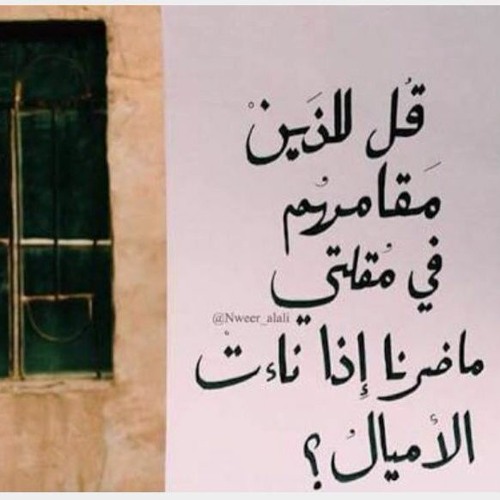 قُل للذَين
مَقامهُم
في مُقلتي
@Nweer_alali
ماضرنا إذا ناءتْ
الأميالُ؟